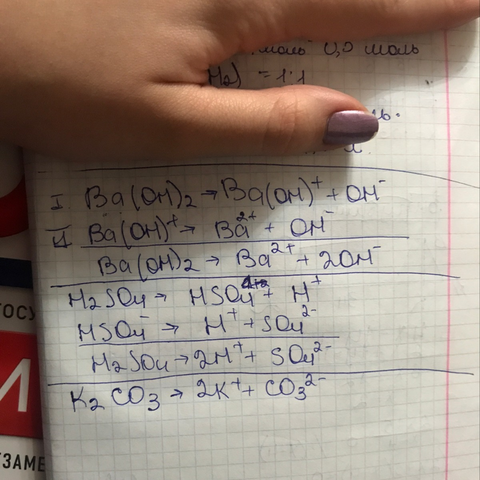 моль 0,5 моль
H₂) = 1:1
I Ba(OH)₂ → Ba(OH)⁺ + OH⁻
II Ba(OH)⁺ → Ba²⁺ + OH⁻
Ba(OH)₂ → Ba²⁺ + 2OH⁻
H₂SO₄ → HSO₄⁻ + H⁺
HSO₄⁻ → H⁺ + SO₄²⁻
H₂SO₄ → 2H⁺ + SO₄²⁻
K₂CO₃ → 2K⁺ + CO₃²⁻
ГОСУ
ЗАМЕ